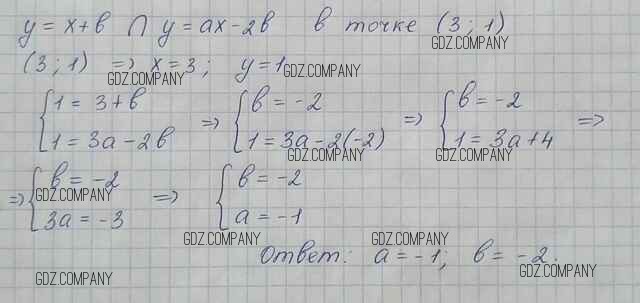 y = x + b ∩ y = ax - 2b в точке (3; 1)
GDZ.COMPANY
(3; 1) => x = 3; y = 1
GDZ.COMPANY GDZ.COMPANY
{ 1 = 3 + b => { b = -2 => { b = -2 =>
1 = 3a - 2b 1 = 3a - 2(-2) 1 = 3a + 4
GDZ.COMPANY GDZ.COMPANY
=> { b = -2 => { b = -2
GDZ.COMPANY
3a = -3 a = -1
GDZ.COMPANY GDZ.COMPANY
Ответ: a = -1; b = -2.
GDZ.COMPANY GDZ.COMPANY